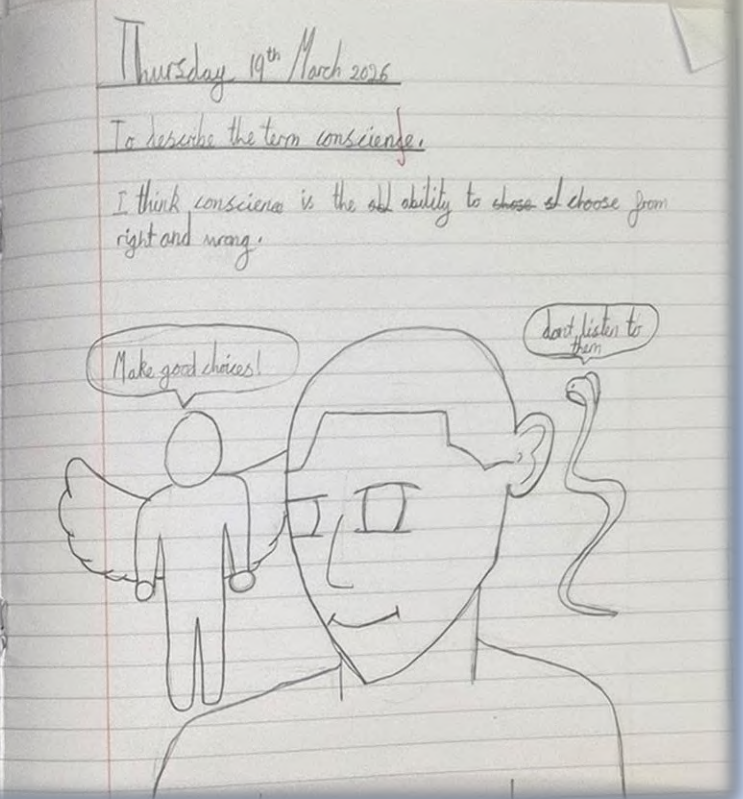 Thursday 19th March 2026
To describe the term conscience.
I think conscience is the abl ability to chose st choose from
right and wrong.
Make good choices!
dont listen to
them